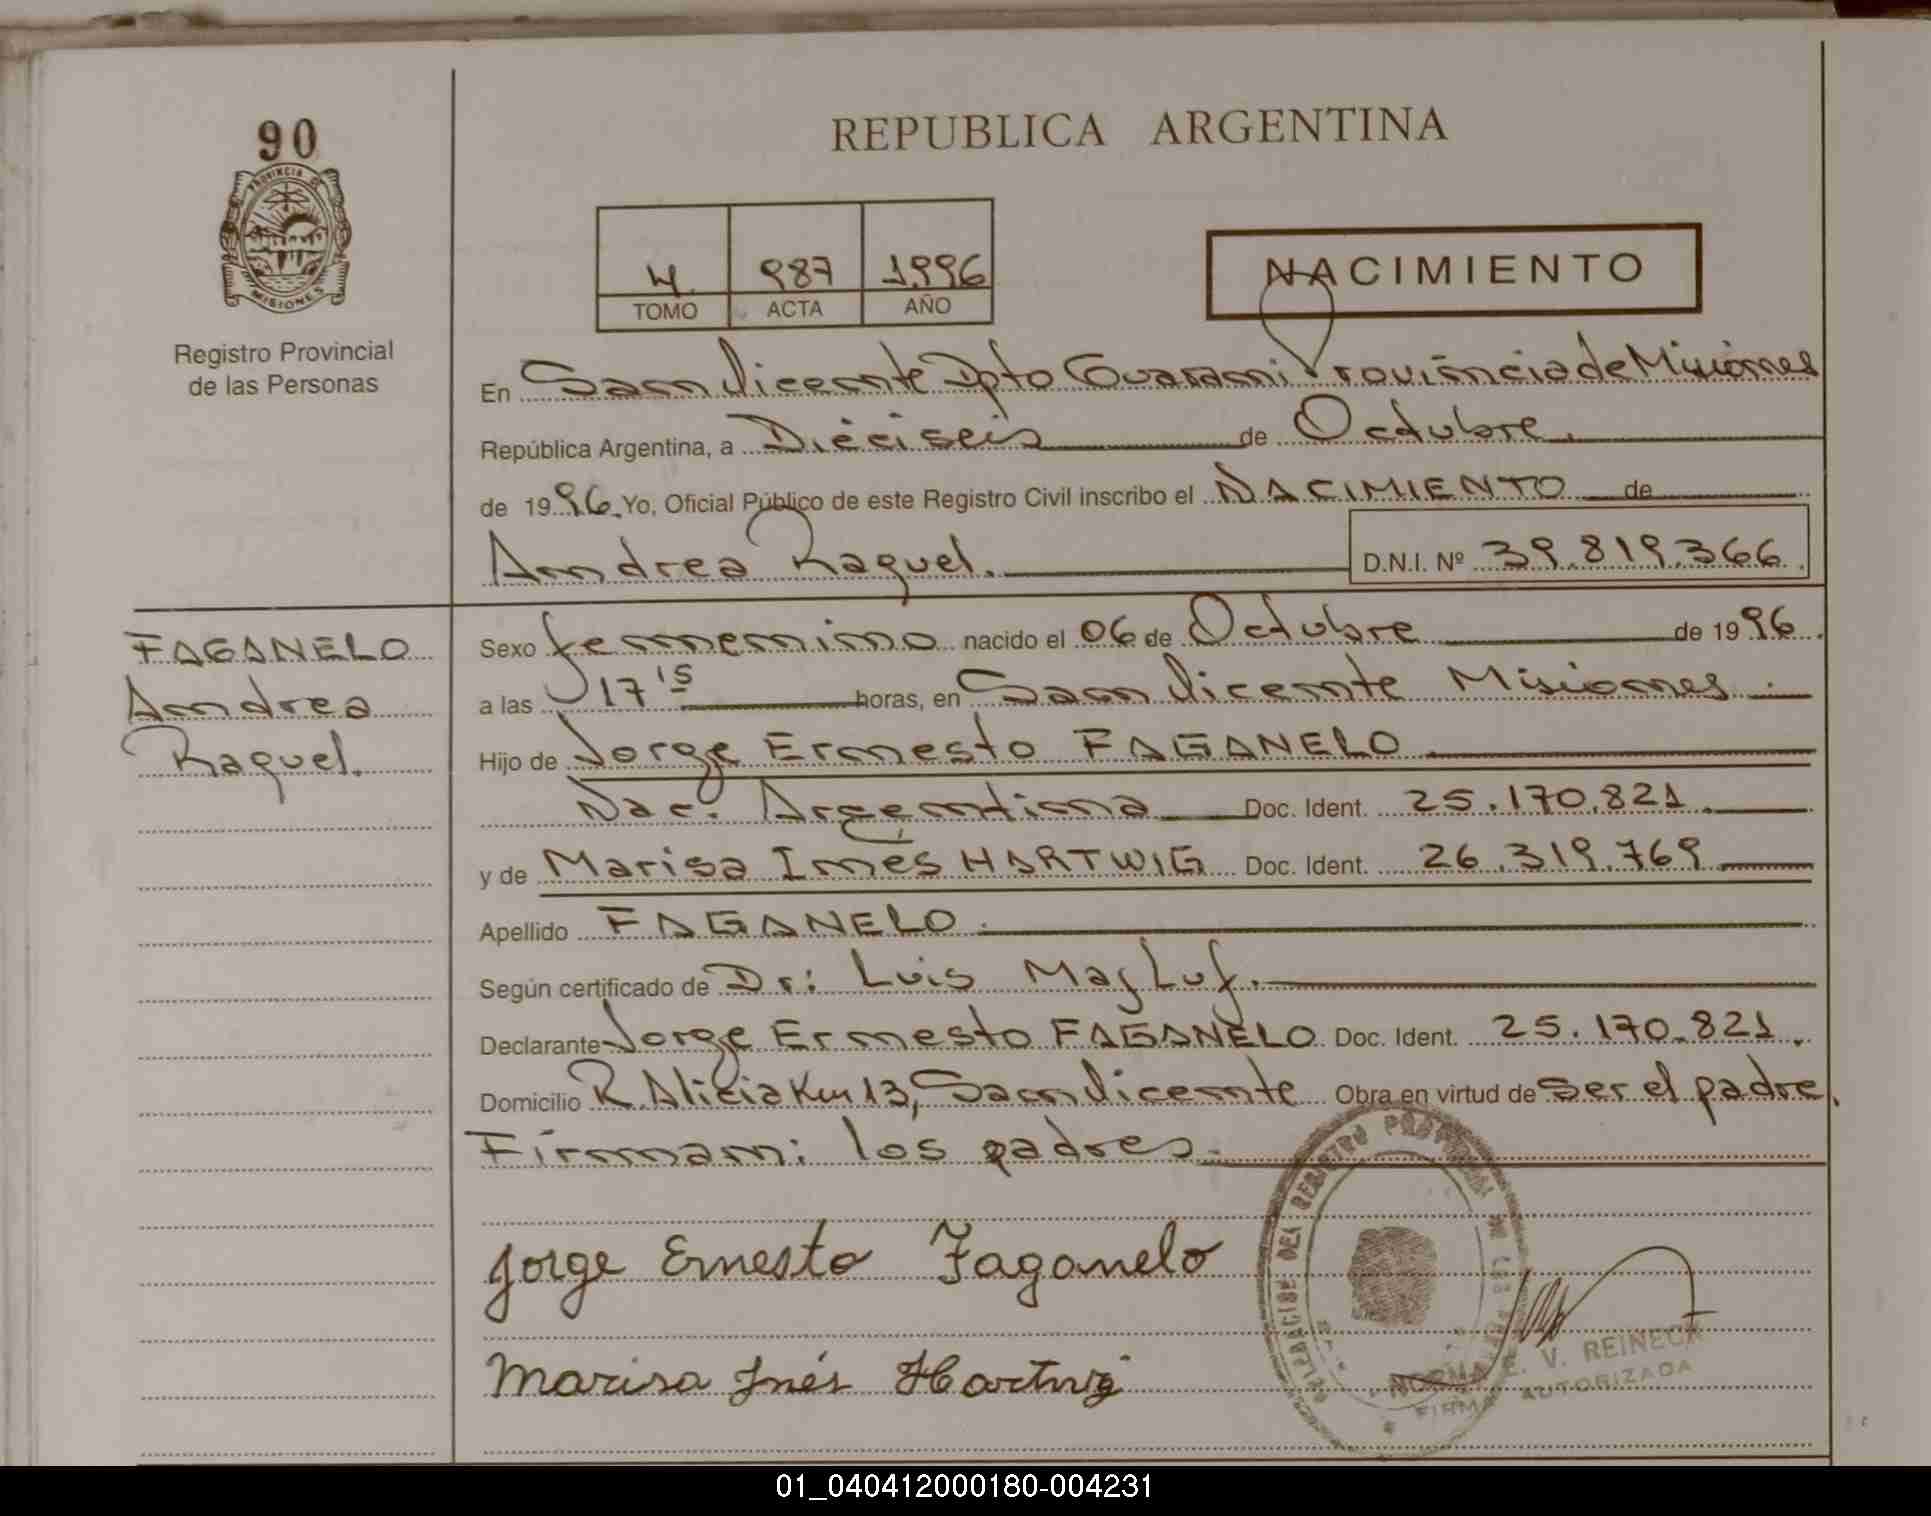 90
PROVINCIA DE
MISIONES
Registro Provincial
de las Personas
REPUBLICA ARGENTINA
4 987 1996
TOMO ACTA AÑO
NACIMIENTO
En San Vicente Dpto Guarani Provincia de Misiones
República Argentina, a Dieciseis de Octubre.
de 1996. Yo, Oficial Público de este Registro Civil inscribo el NACIMIENTO de
Andrea Raquel. D.N.I. Nº 39.819.366.
FAGANELO
Andrea
Raquel.
Sexo femenino nacido el 06 de Octubre de 1996.
a las 17 15 horas, en San Vicente Misiones.
Hijo de Jorge Ernesto FAGANELO
Nac. Argentina Doc. Ident. 25.170.821.
y de Marisa Inés HARTWIG Doc. Ident. 26.319.769
Apellido FAGANELO.
Según certificado de Dr: Luis Masluf.
Declarante Jorge Ernesto FAGANELO Doc. Ident. 25.170.821.
Domicilio R. Alicia Km 13, San Vicente Obra en virtud de ser el padre.
Firman: los padres.
Jorge Ernesto Faganelo
Marisa Inés Hartwig
DELEGACION DEL REGISTRO PROVINCIAL DE LAS
NORMA E. V. REINECK
FIRMA AUTORIZADA
01_040412000180-004231